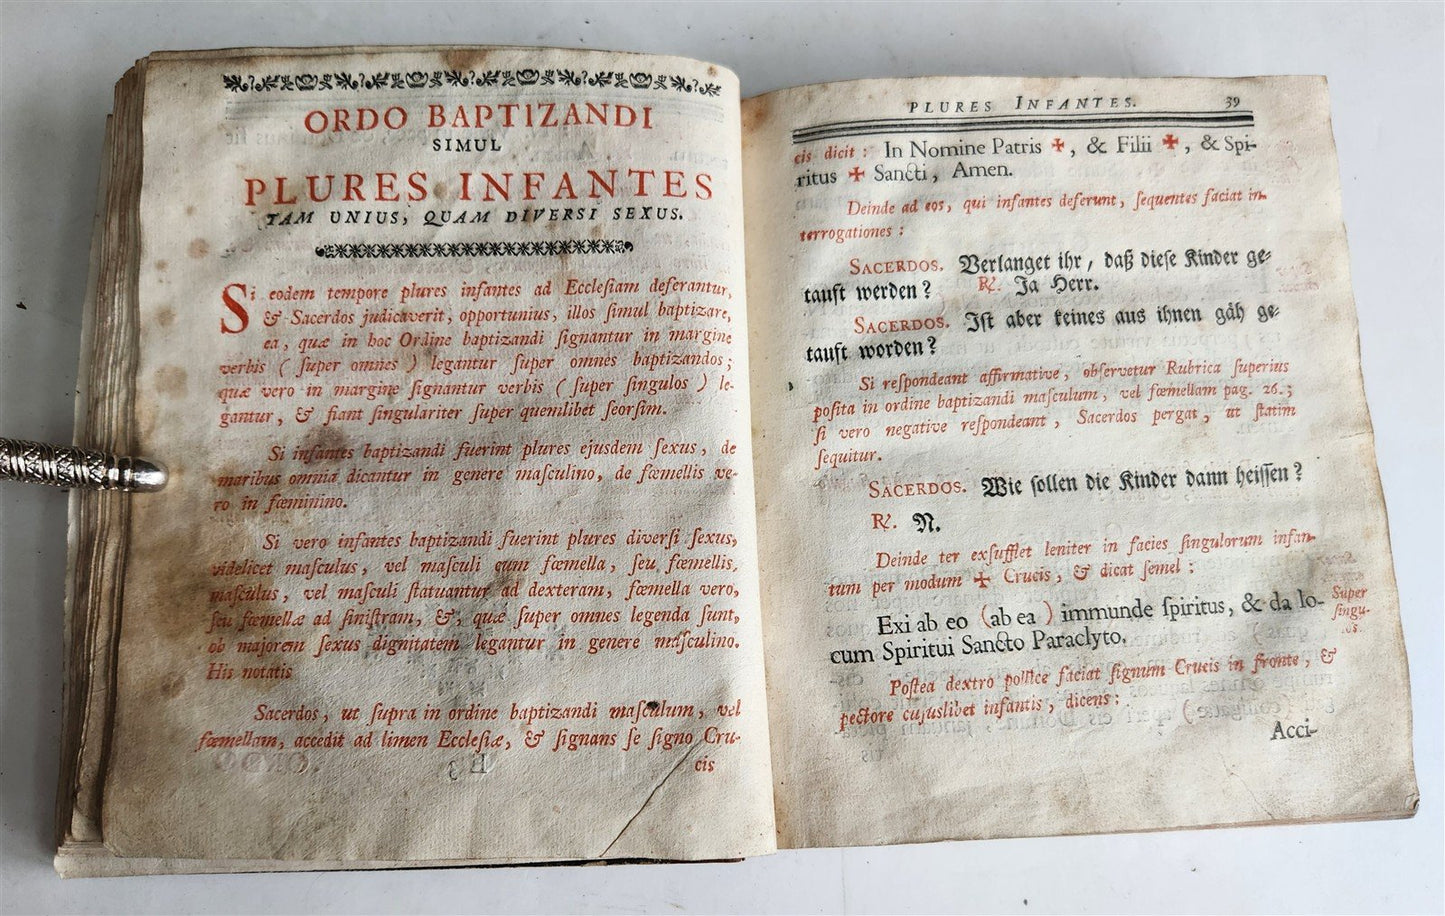 ORDO BAPTIZANDI
SIMUL
PLURES INFANTES
TAM UNIUS, QUAM DIVERSI SEXUS.
Si eodem tempore plures infantes ad Ecclesiam deferantur,
& Sacerdos judicaverit, opportunius, illos simul baptizare,
ea, quæ in hoc Ordine baptizandi signantur in margine
verbis ( super omnes ) legantur super omnes baptizandos;
quæ vero in margine signantur verbis ( super singulos ) le-
gantur, & fiant singulariter super quemlibet seorsim.
Si infantes baptizandi fuerint plures ejusdem sexus, de
maribus omnia dicantur in genere masculino, de fœmellis ve-
ro in fœminino.
Si vero infantes baptizandi fuerint plures diversi sexus,
videlicet masculus, vel masculi cum fœmella, seu fœmellis,
masculus, vel masculi statuantur ad dexteram, fœmella vero,
seu fœmellæ ad sinistram, &, quæ super omnes legenda sunt,
ob majorem sexus dignitatem legantur in genere masculino.
His notatis
Sacerdos, ut supra in ordine baptizandi masculum, vel
fœmellam, accedit ad limen Ecclesiæ, & signans se signo Cru-
cis
PLURES INFANTES. 39
cis dicit: In Nomine Patris ✠, & Filii ✠, & Spi-
ritus ✠ Sancti, Amen.
Deinde ad eos, qui infantes deferunt, sequentes faciat in-
terrogationes:
SACERDOS. Verlanget ihr, daß diese Kinder ge-
tauft werden? ℟. Ja Herr.
SACERDOS. Ist aber keines aus ihnen gäh ge-
tauft worden?
Si respondeant affirmative, observetur Rubrica superius
posita in ordine baptizandi masculum, vel fœmellam pag. 26.;
si vero negative respondeant, Sacerdos pergat, ut statim
sequitur.
SACERDOS. Wie sollen die Kinder dann heissen?
℟. N.
Deinde ter exsufflet leniter in facies singulorum infan-
tum per modum ✠ Crucis, & dicat semel:
Super
singu-
los.
Exi ab eo (ab ea) immunde spiritus, & da lo-
cum Spiritui Sancto Paraclyto.
Postea dextro pollice faciat signum Crucis in fronte, &
pectore cujuslibet infantis, dicens:
Acci-